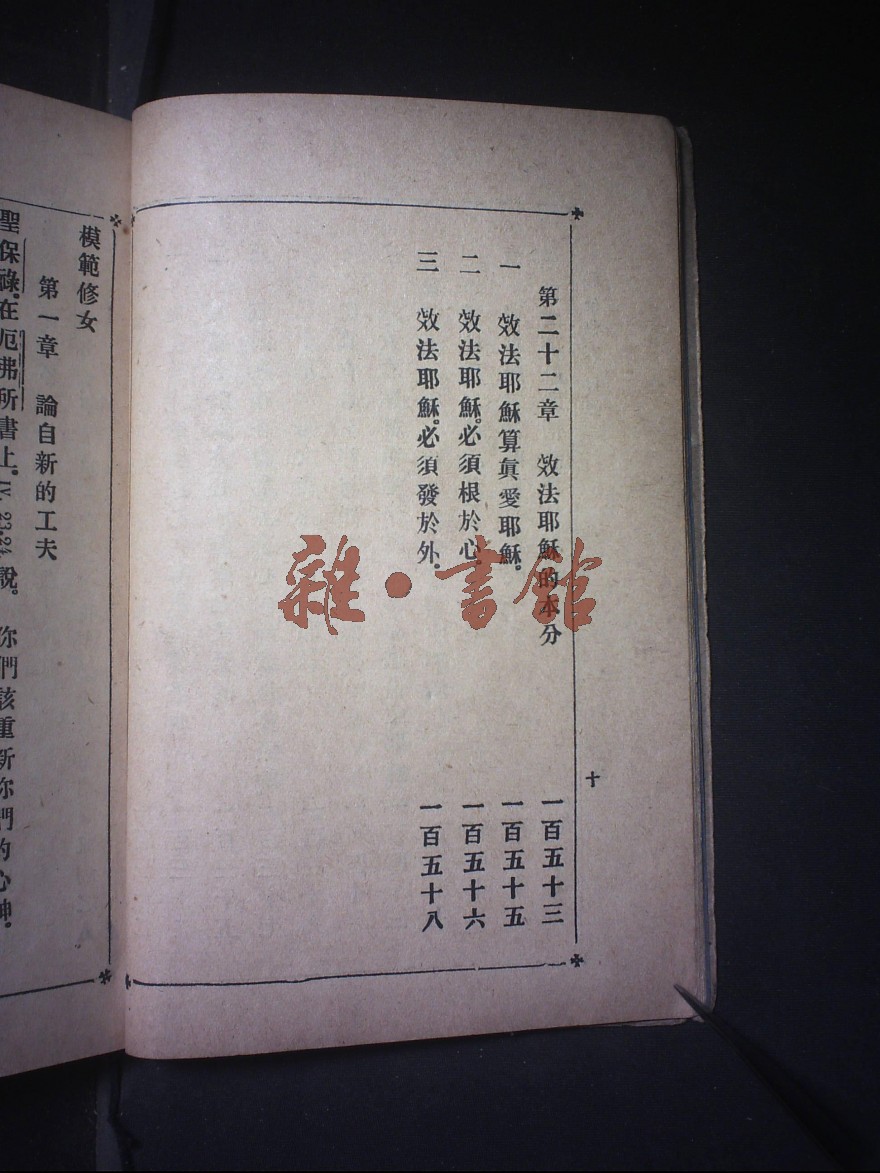 第二十二章　效法耶穌的本分　一百五十三
一　效法耶穌算眞愛耶穌。　一百五十五
二　效法耶穌。必須根於心　一百五十六
三　效法耶穌。必須發於外。　一百五十八
十
雜·書館
模範修女
第一章　論自新的工夫
聖保祿。在厄弗所書上。IV, 23-24, 說。你們該重新你們的心神。